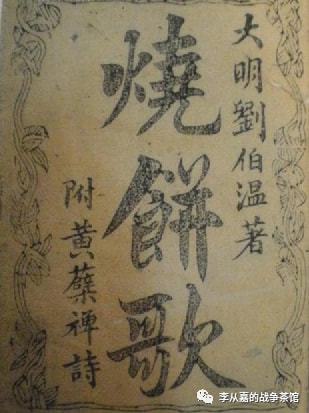 大明劉伯温著
燒餅歌
附黃蘗禪詩
李从嘉的战争茶馆